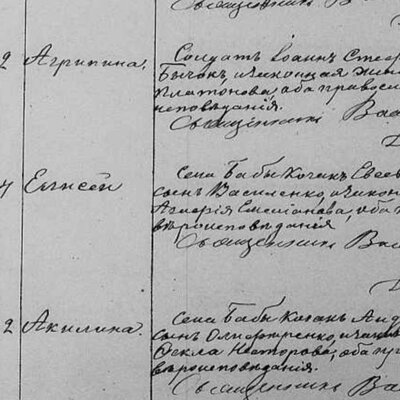 Священник
2 Агрипина. Солдатъ Іоанн Стеф
Бычок и законная жена
Платонова, оба православ
исповѣданія.
Священник Ва
4 Елисей Села Бабы Козак Евсев
сын Василенко, и закон
Емелианова, оба
вѣроисповѣданія
Священник Ва
2 Акилина. Села Бабы Козак Анд
сын и зак
Фекла Несторова, оба пр
вѣроисповѣданія.
Священник Ва